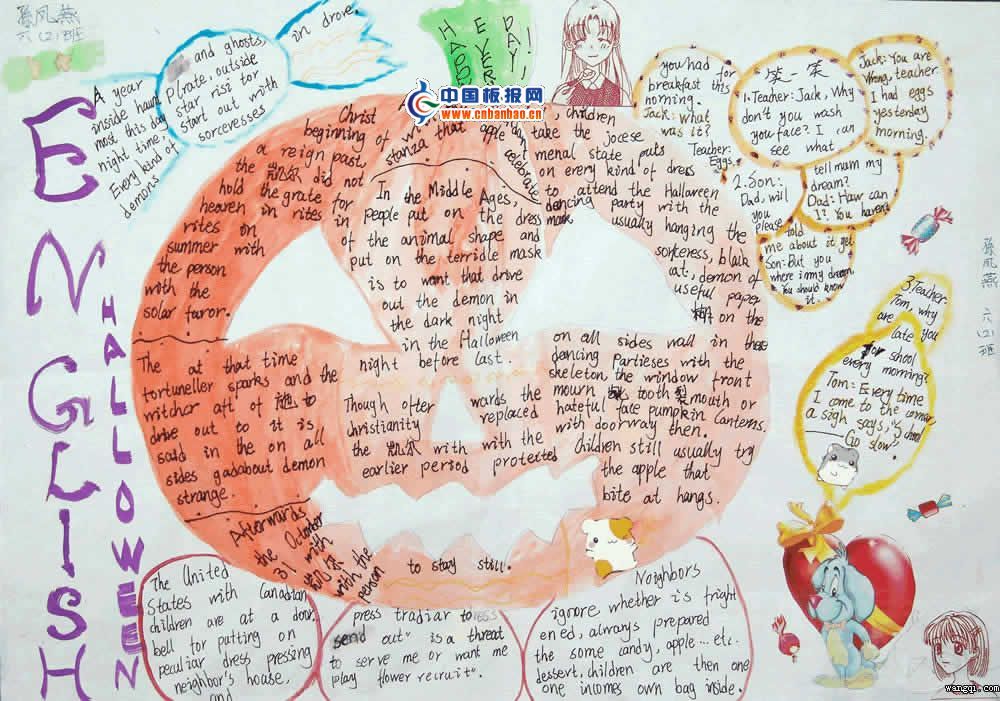 孙凤燕
六(2)班
ENGLISH
HALLOWEEN
A year
inside haunt
most this day
night time,
Every kind of
demons
and ghosts,
Pirate, outside
star rise for
start out with
sorcevesses
in drove
HAPPY
EVERY
DAY!
中国板报网
www.cnbanbao.cn
Christ
beginning of
a reign past,
the 凯尔 did not
hold the grate for
heaven in rites in
rites on
summer with
the person
with the
solar favor.
stanza
that apple
celebrate
In the Middle Ages,
people put on the dress
of the animal shape and
put on the terrible mask
is to want that drive
out the demon in
the dark night
in the Halloween
night before last.
children
take the jocese
menal state puts
on every kind of dress
to attend the Halloween
dencing party with the
mask, usually hanging the
sorceress, black
cat, demon of
useful paper
on the
on all sides wall in these
dencing Partieses with the
skeleton, the window front
mourn tooth 裂 mouth or
hateful fate pumpkin Canterns.
with doorway then.
Children still usually try
the apple that
bite at hangs.
The at that time
fortuneller sparks and the
witcher aft of 施 to
drive out to it is
said in the on all
sides gadabout demon
strange.
Though ofter wards the
christianity replaced
the 凯尔 with with the
earlier period protected
Afterwards
the October
31 with
凯尔
with the
person
to stay still.
The United
States with Canadian
children are at a door
bell for putting on
peculiar dress pressing
neighbor's house,
and
press tradiar to
send out" is a threat
to serve me or want me
play flower recruit".
Neighbors
ignore whether is fright
ened, always prepared
the some candy, apple... etc.
dessert, children are then one
one incomes own bag inside.
笑一笑
1. Teacher: Jack, Why
don't you wash
you face? I can
see what
you had for
breakfast this
morning.
Jack: What
was it?
Teacher:
Eggs.
Jack: You are
Wrong, teacher
I had eggs
yesterday
morning.
2. Son:
Dad, will
you
please
tell mum my
dream?
Dad: How can
I? You haven't
told
me about it yet
Son: But you
where in my dream.
You should know
it.
3. Teacher:
Tom, why
are
late you
for school
every morning?
Tom: Every time
I come to the corner,
a sign says, "School
Go slow".
孙凤燕
六(2)班
wangqi.com